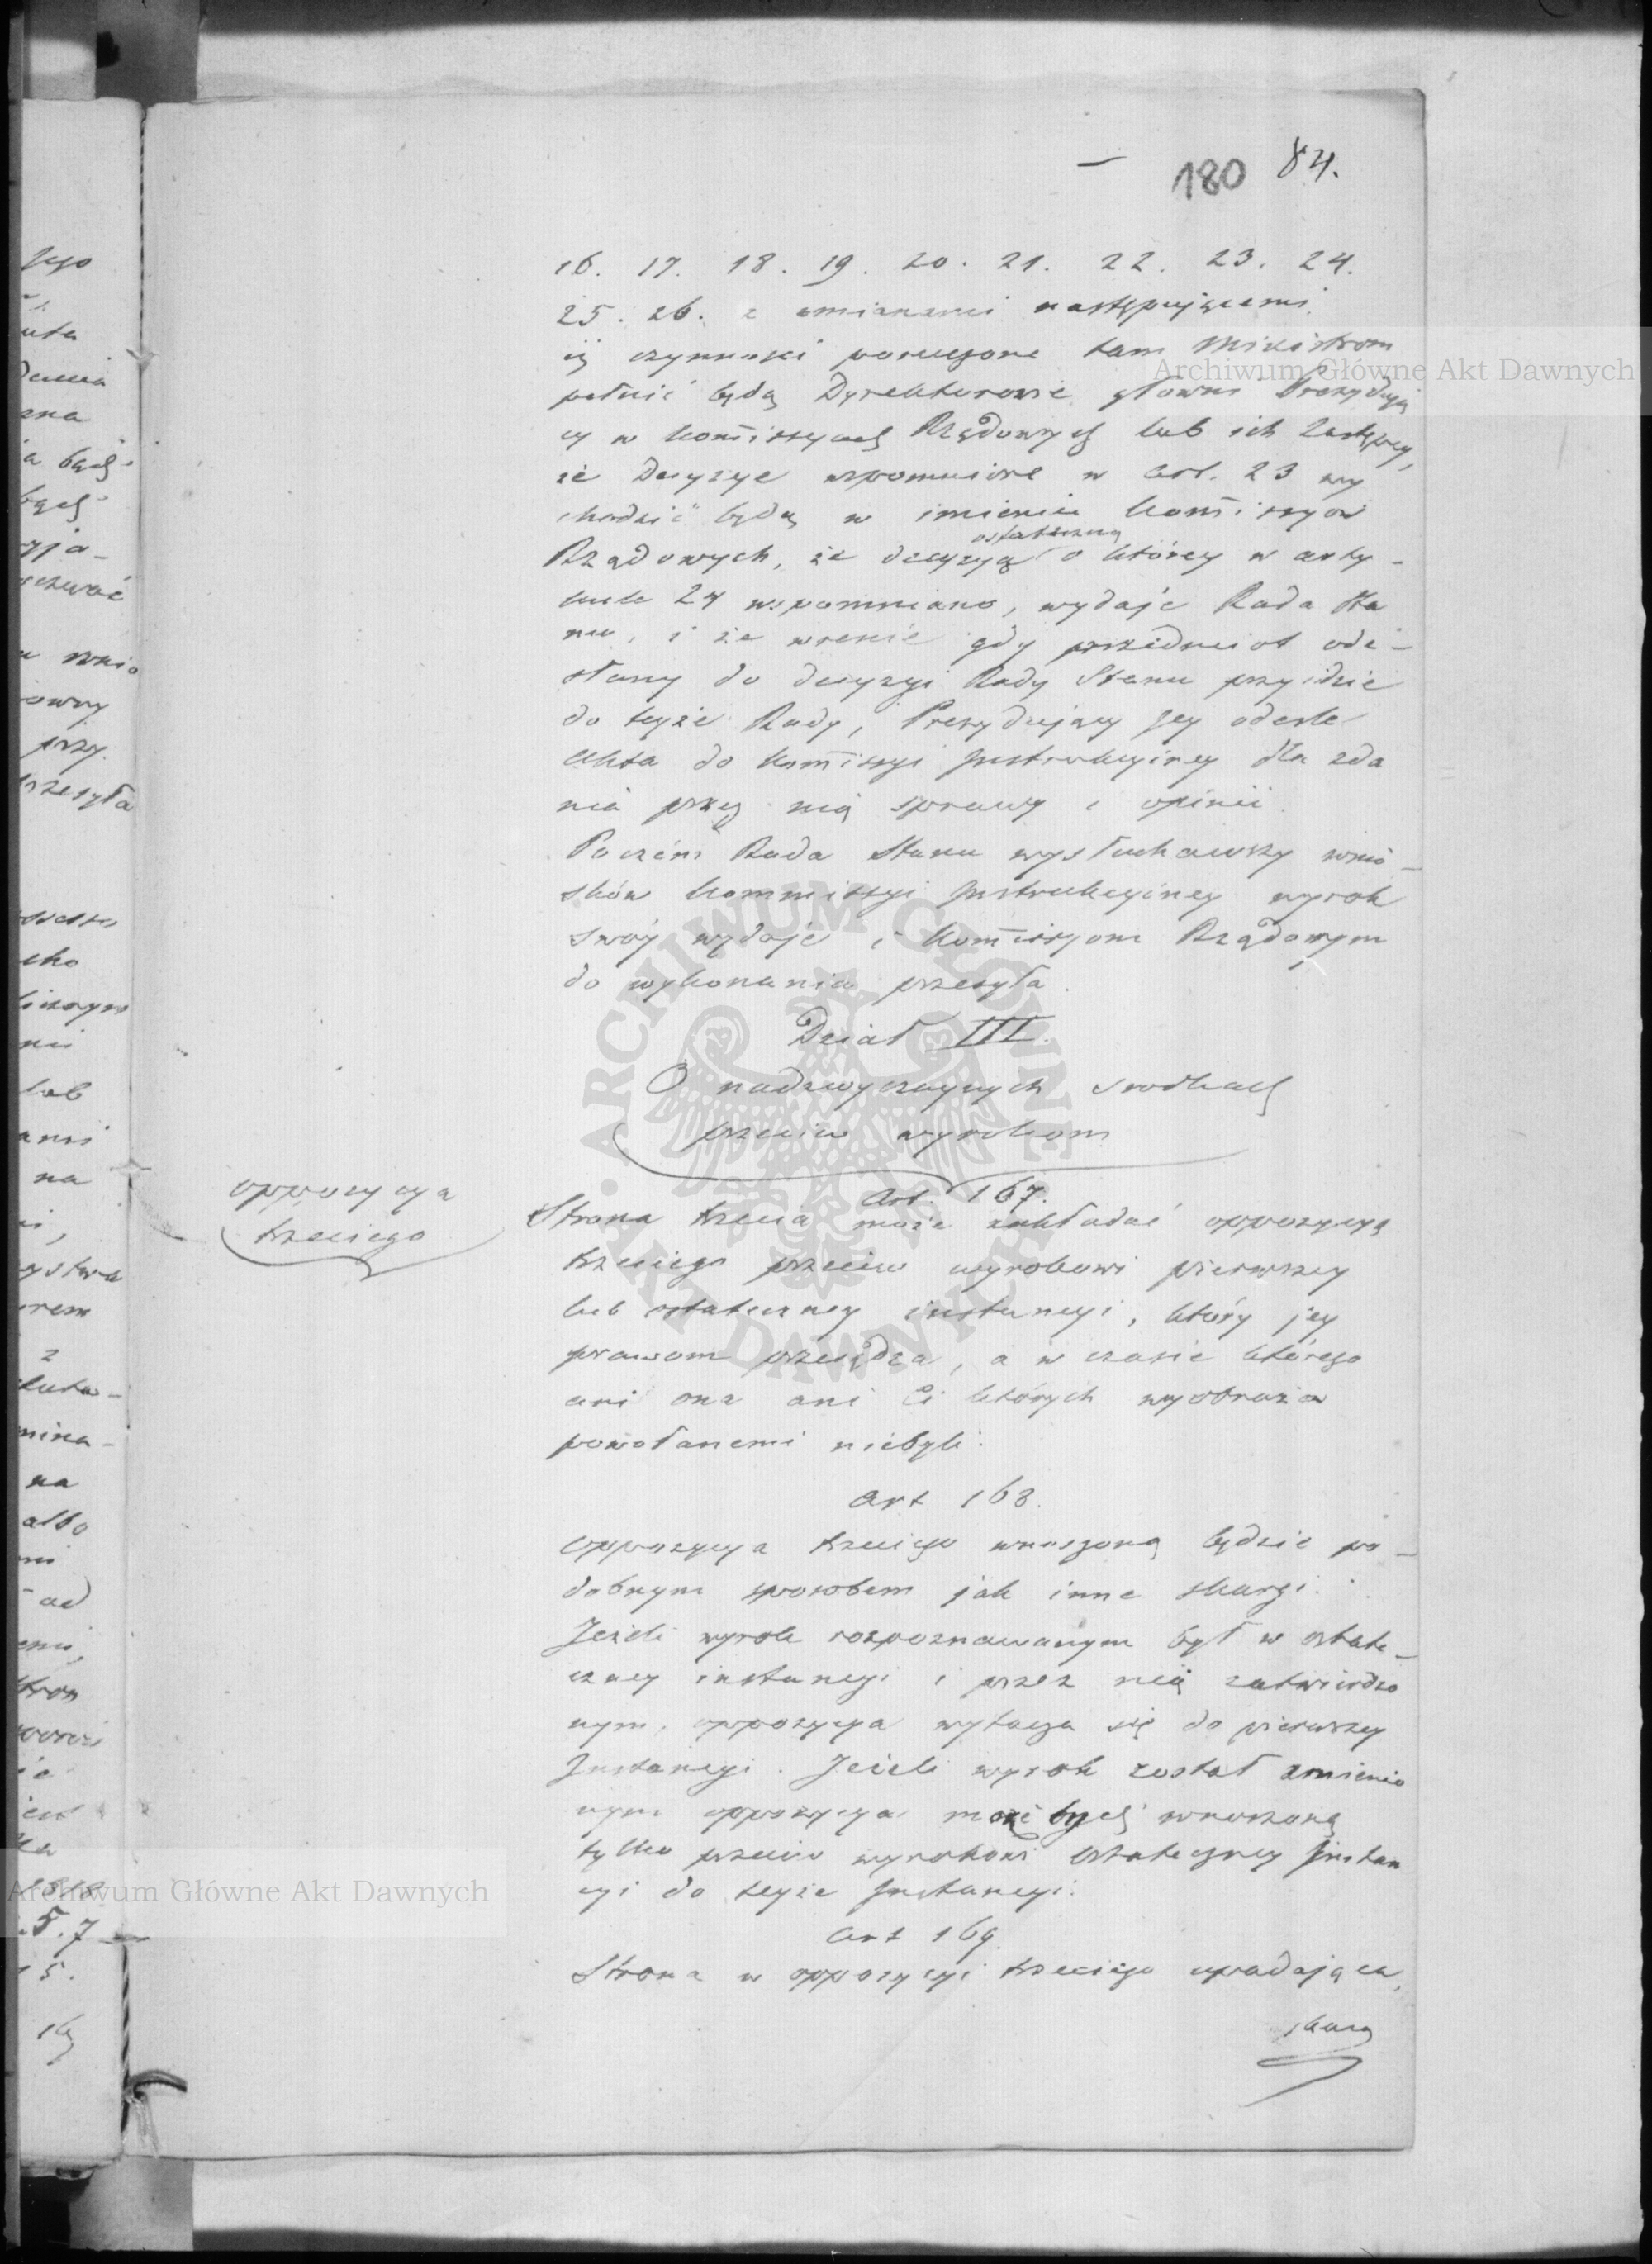 180 84.
16. 17. 18. 19. 20. 21. 22. 23. 24.
25. 26. z zmianami następującemi.
iż czynności poruczone tam Ministrom
pełnić będą Dyrektorowie główni Prezydują
cy w Kom̄issyach Rządowych lub ich Zastępcy,
że Decyzye wspomnione w Art. 23 wy
chodzić będą w imieniu Kom̄issyów
ostateczną
Rządowych, że decyzyą o którey w arty-
kule 24 wspomniano, wydaje Rada Sta
nu, i że wrenie gdy przedmiot ode-
słany do decyzyi Rady Stanu przyidzie
do teyże Rady, Prezydujący Jey odeśle
Akta do Kom̄issyi Instrukcyiney dla zda
nia przez nią sprawy i opinii.
Poczém Rada Stanu wysłuchawszy wnio-
sków Kommissyi Instrukcyiney wyrok
swóy wydaje i Kom̄issyom Rządowym
do wykonania przesyła.
Dział III.
O nadzwyczaynych srodkach
przeciw wyrokom
Art. 167.
oppozycya
trzeciego
Strona trzecia może zakładać oppozycyą
trzeciego przeciw wyrokowi pierwszey
lub ostateczney instancyi, który jey
prawom przesądza, a w czasie którego
ani ona ani Ci których wyobraża
powołanemi niebyli.
Art 168.
Oppozycya trzeciego wnoszoną będzie po-
dobnym sposobem jak inne skargi.
Jeżeli wyrok rozpoznawanym był w ostate-
czney instancyi i przez nią zatwierdzo
nym, oppozycya wytacza się do pierwszey
Instancyi. Jeżeli wyrok został zmienio
nym oppozycya może bydź wnoszoną
tylko przeciw wyrokowi ostateczney Instan
cyi do teyże Instancyi.
Art 169.
Strona w oppozycyi trzeciego upadająca,
Archiwum Główne Akt Dawnych
ARCHIWUM GŁÓWNE AKT DAWNYCH
Archiwum Główne Akt Dawnych